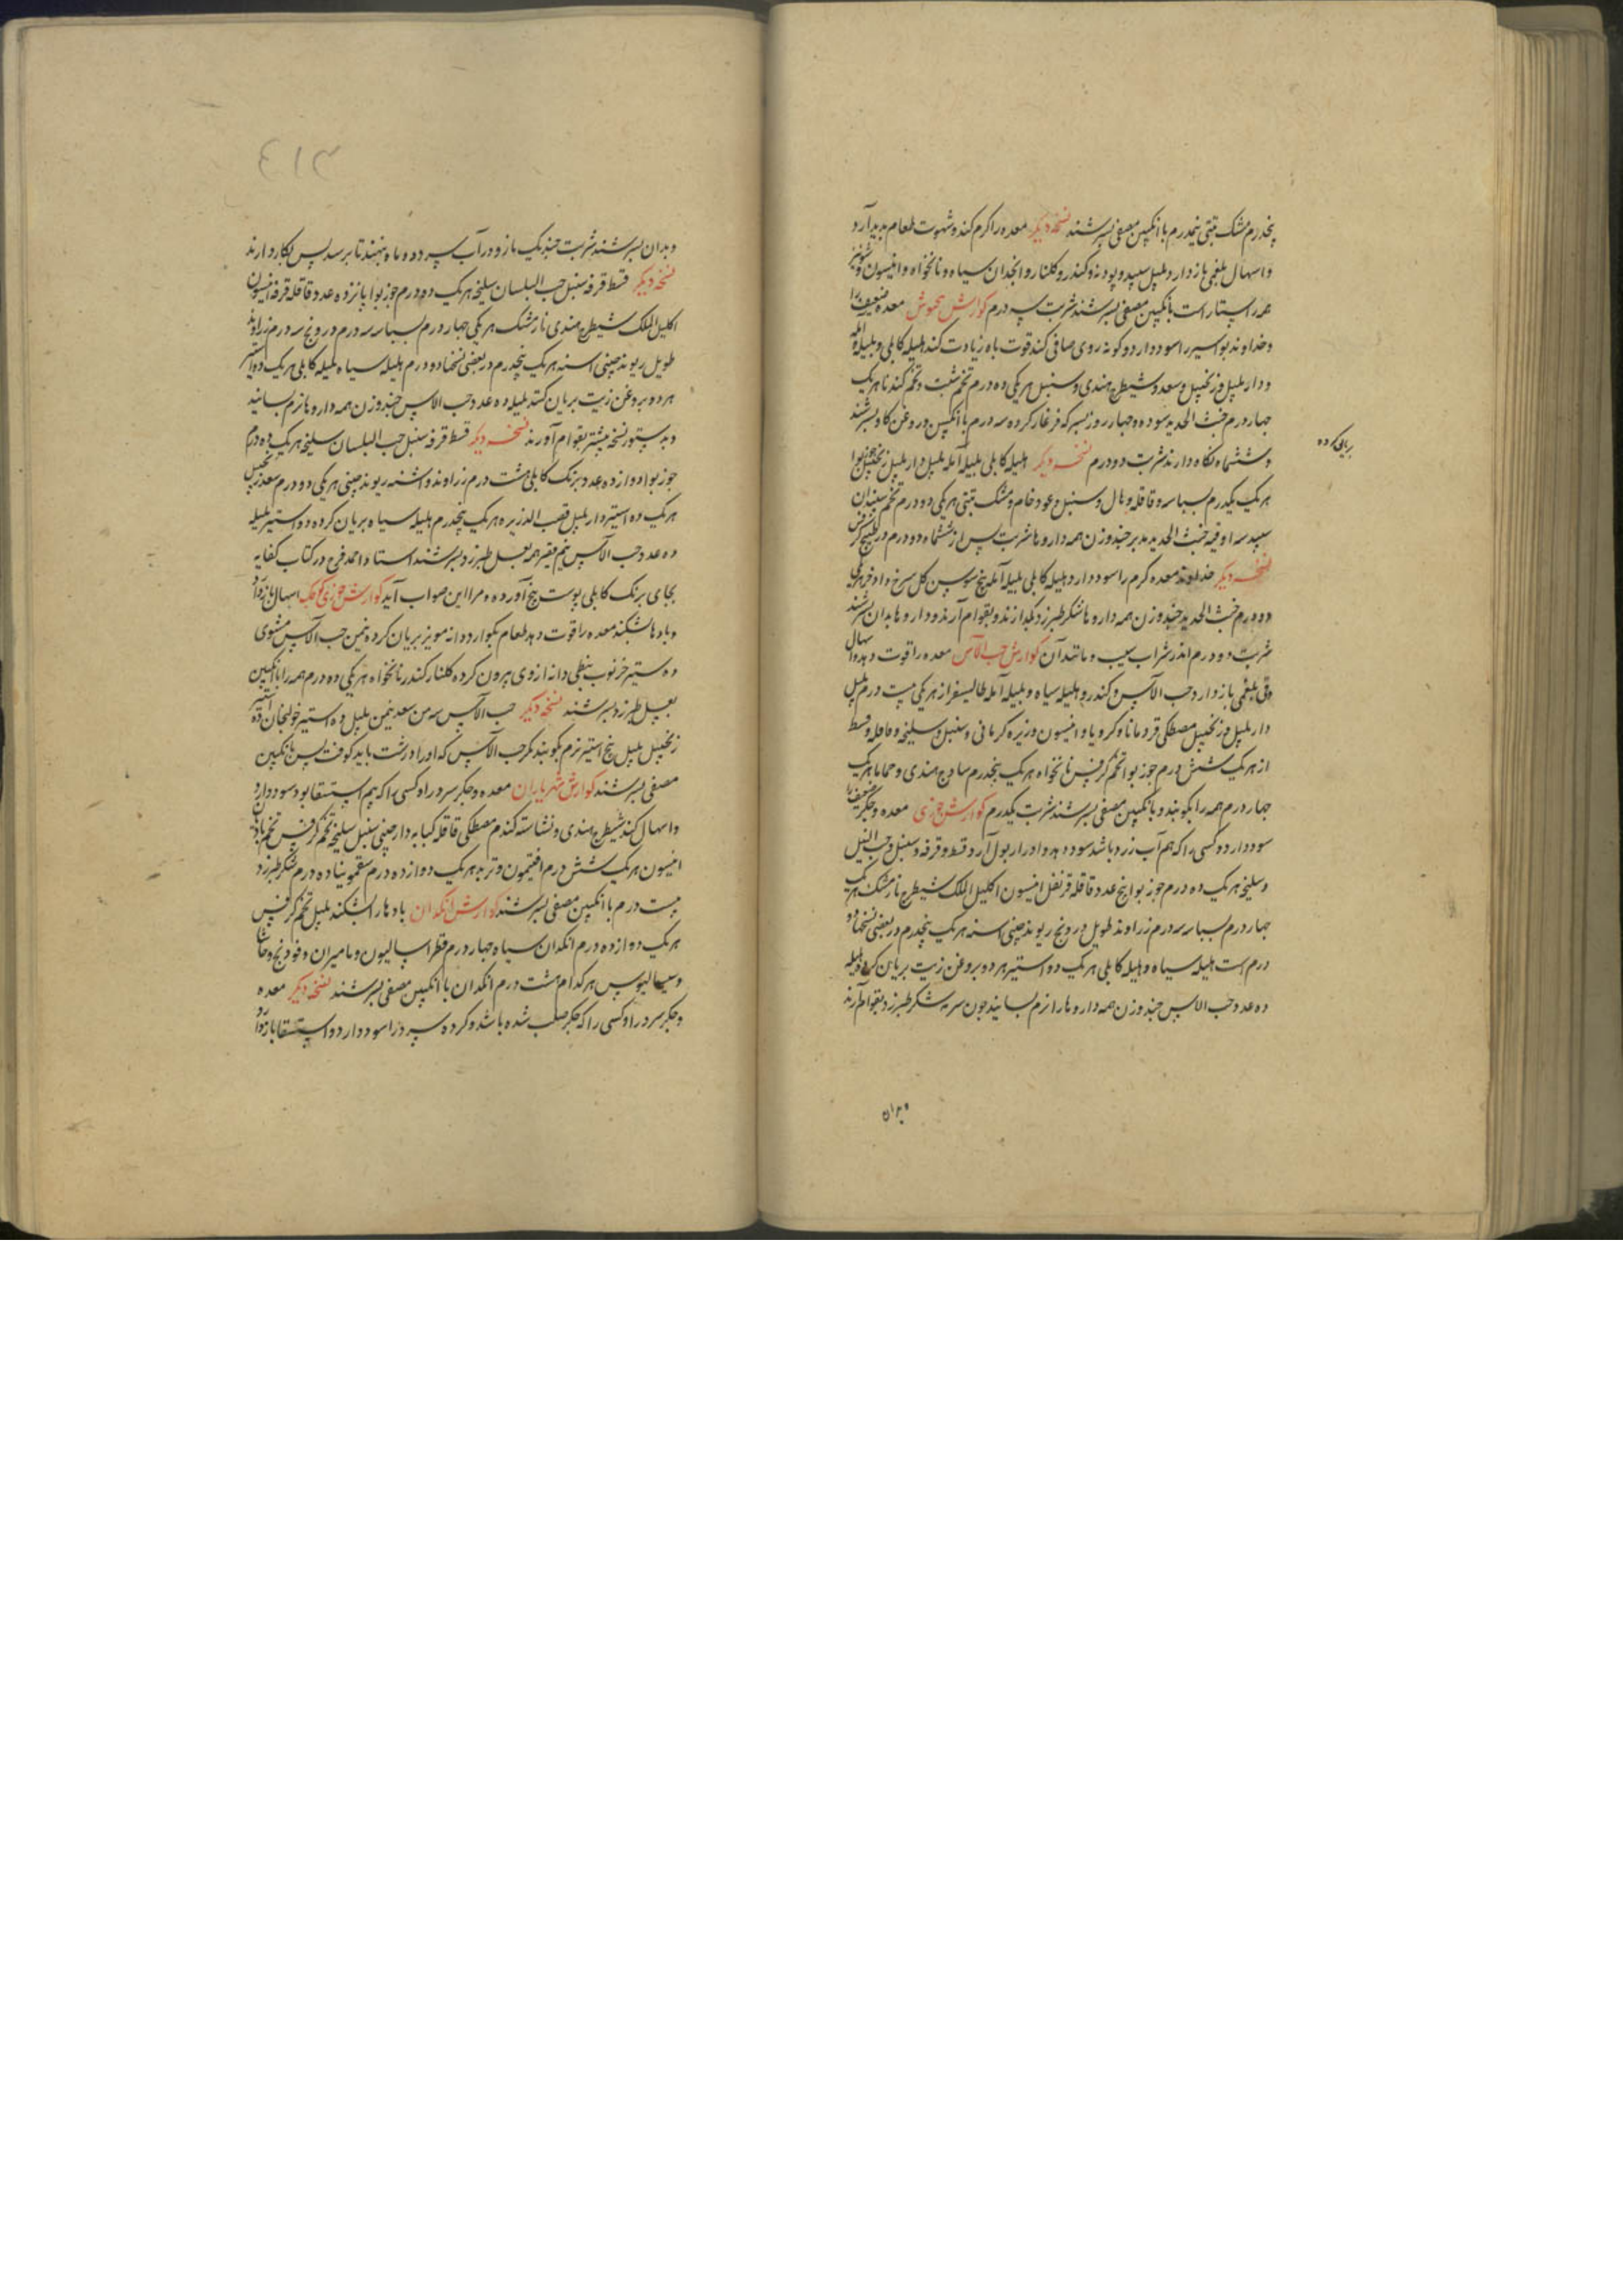 پنجدرم مشک تبتی نیمدرم با انگبین مصفی بسرشند نسخه دیکر معده را کرم کند و شهوت طعام پدید آرد
و اسهال بلغمی باز دارد پلپل سپید و پودنه و کندر و کلنار و انجدان سیاه و نانخواه و انیسون و شونیز
همه راستا راست بانکبین مصفی بسرشند شربت سه درم کوارش معده ضعیف را
و خداوند بواسیر را سود دارد و کونه روی صافی کند قوت باه زیادت کند هلیله کابلی و بلیله و آمله
و دار پلپل و زنجبیل و سعد و شیطرج هندی و سنبل هر یکی ده درم تخم شبت و تخم کندنا هر یک
چهار درم خبث الحدید سوده و چهار روز بسرکه فرغار کرده سه درم با انکبین و روغن کاو بسرشند
بریان کرده
و ششماه نکاه دارند شربت دو درم نسخه دیکر هلیله کابلی بلیله آمله پلپل دار پلپل زنجبیل جوز بوا
هر یک یکدرم بسباسه و قاقله و هال و سنبل و عود خام و مشک تبتی هر یکی دو درم تخم سپندان
سپید سه اوقیه خبث الحدید مدبر چند وزن همه داروها شربت پس از ششماه دو درم
نسخه دیکر خداوند معده کرم را سود دارد هلیله کابلی بلیله آمله بیخ سوسن کل سرخ و اذخر هر یکی
دو درم خبث الحدید چند وزن همه داروها شکر طبرزد بکدازند و بقوام آرند و داروها بدان بسرشند
شربت دو درم اندر شراب سیب و مانند آن کوارش حب الآس معده را قوت دهد و اسهال
و قی بلغمی باز دارد حب الآس و کندر و هلیله سیاه و بلیله آمله طالیسفر از هر یکی بیست درم پلپل
دار پلپل و زنجبیل مصطکی قردمانا و کرویا و انیسون و زیره کرمانی و سنبل و سلیخه و قاقله و قسط
از هر یک شش درم جوز بوا تخم کرفس نانخواه هر یک پنجدرم ساذج هندی و حماما هر یک
چهار درم همه را بکوبند و بانکبین مصفی بسرشند شربت یکدرم کوارش جوزی معده و جکر ضعیف را
سود دارد و کسی را که بیم آب زرد باشد سود دهد و ادرار بول آرد قسط و قرفه و سنبل و حب النیل
و سلیخه هر یک ده درم جوز بوا پنج عدد قاقله قرنفل انیسون اکلیل الملک شیطرج نارمشک هر یک
چهار درم بسباسه سه درم زراوند طویل درونج ریوند چینی اسنه هر یک پنجدرم در بعضی نسخها دو
درم است هلیله سیاه و هلیله کابلی هر یک دو استیر هر دو بروغن زیت بریان کرده بلیله
ده عدد حب الاس چند وزن همه داروها را نرم بسایند چون سرمه شکر طبرزد بقوام آرند
و بدان
و بدان بسرشند شربت چند یک مازو در آب سرد و دو ماه بنهند تا برسد پس بکار دارند
نسخه دیکر قسط قرفه سنبل حب البلسان سلیخه هر یک ده درم جوز بوا پانزده عدد قاقله قرفه انیسون
اکلیل الملک شیطرج هندی نارمشک هر یکی چهار درم بسباسه سه درم درونج سه درم زراوند
طویل ریوند چینی اسنه هر یک پنجدرم در بعضی نسخها دو درم هلیله سیاه هلیله کابلی هر یک دو استیر
هر دو بروغن زیت بریان کنند بلیله ده عدد حب الاس چند وزن همه داروها نرم بسایند
و بدستور نسخه پیشتر بقوام آورند نسخه دیکر قسط قرفه سنبل حب البلسان سلیخه هر یک ده درم
جوز بوا دوازده عدد برنک کابلی هشت درم زراوند و اشنه ریوند چینی هر یکی دو درم سعد زنجبیل
هر یک ده استیر دار پلپل قصب الذریره هر یک پنجدرم هلیله سیاه بریان کرده دو استیر بلیله
ده عدد حب الآس نیم قفیز همه بعسل طبرزد بسرشند استاد احمد فرخ در کتاب کفایه
بجای برنک کابلی پوست بیخ آورده و مرا این صواب آید کوارش جوزی کوچک اسهال باز دارد
و بادها شکند معده را قوت دهد طعام بکوارد دانه مویز بریان کرده نیمن حب الآس مشوی
ده ستیر خرنوب نبطی دانه از وی بیرون کرده کلنار کندر نانخواه هر یکی ده درم همه را با انکبین
بعسل طبرزد بسرشند نسخه دیکر حب الآس سه من سعد نیمن پلپل ده استیر خولنجان ده استیر
زنجبیل پلپل پنج استیر نرم بکوبند مکر حب الآس که او را درشت باید کوفت پس بانکبین
مصفی بسرشند کوارش شهریاران معده و جکر سرد را و کسی را که بیم استسقا بود سود دارد
و اسهال کند شیطرج هندی و نشاسته کندم مصطکی قاقله کبابه دارچینی سنبل سلیخه تخم کرفس تخم بادیان
انیسون هر یک شش درم افتیمون و تربد هر یک دوازده درم سقمونیا ده درم شکر طبرزد
بیست درم با انکبین مصفی بسرشند کوارش انکدان بادها را بشکند پلپل تخم کرفس
هر یک دوازده درم انکدان سیاه چهار درم فطراسالیون و مامیران و فودنج و حاشا
و سیسالیوس هر کدام هشت درم انکدان با انکبین مصفی بسرشند نسخه دیکر معده
و جکر سرد را و کسی را که جکر صلب شده باشد و کرده سرد را سود دارد و استسقا باز دارد